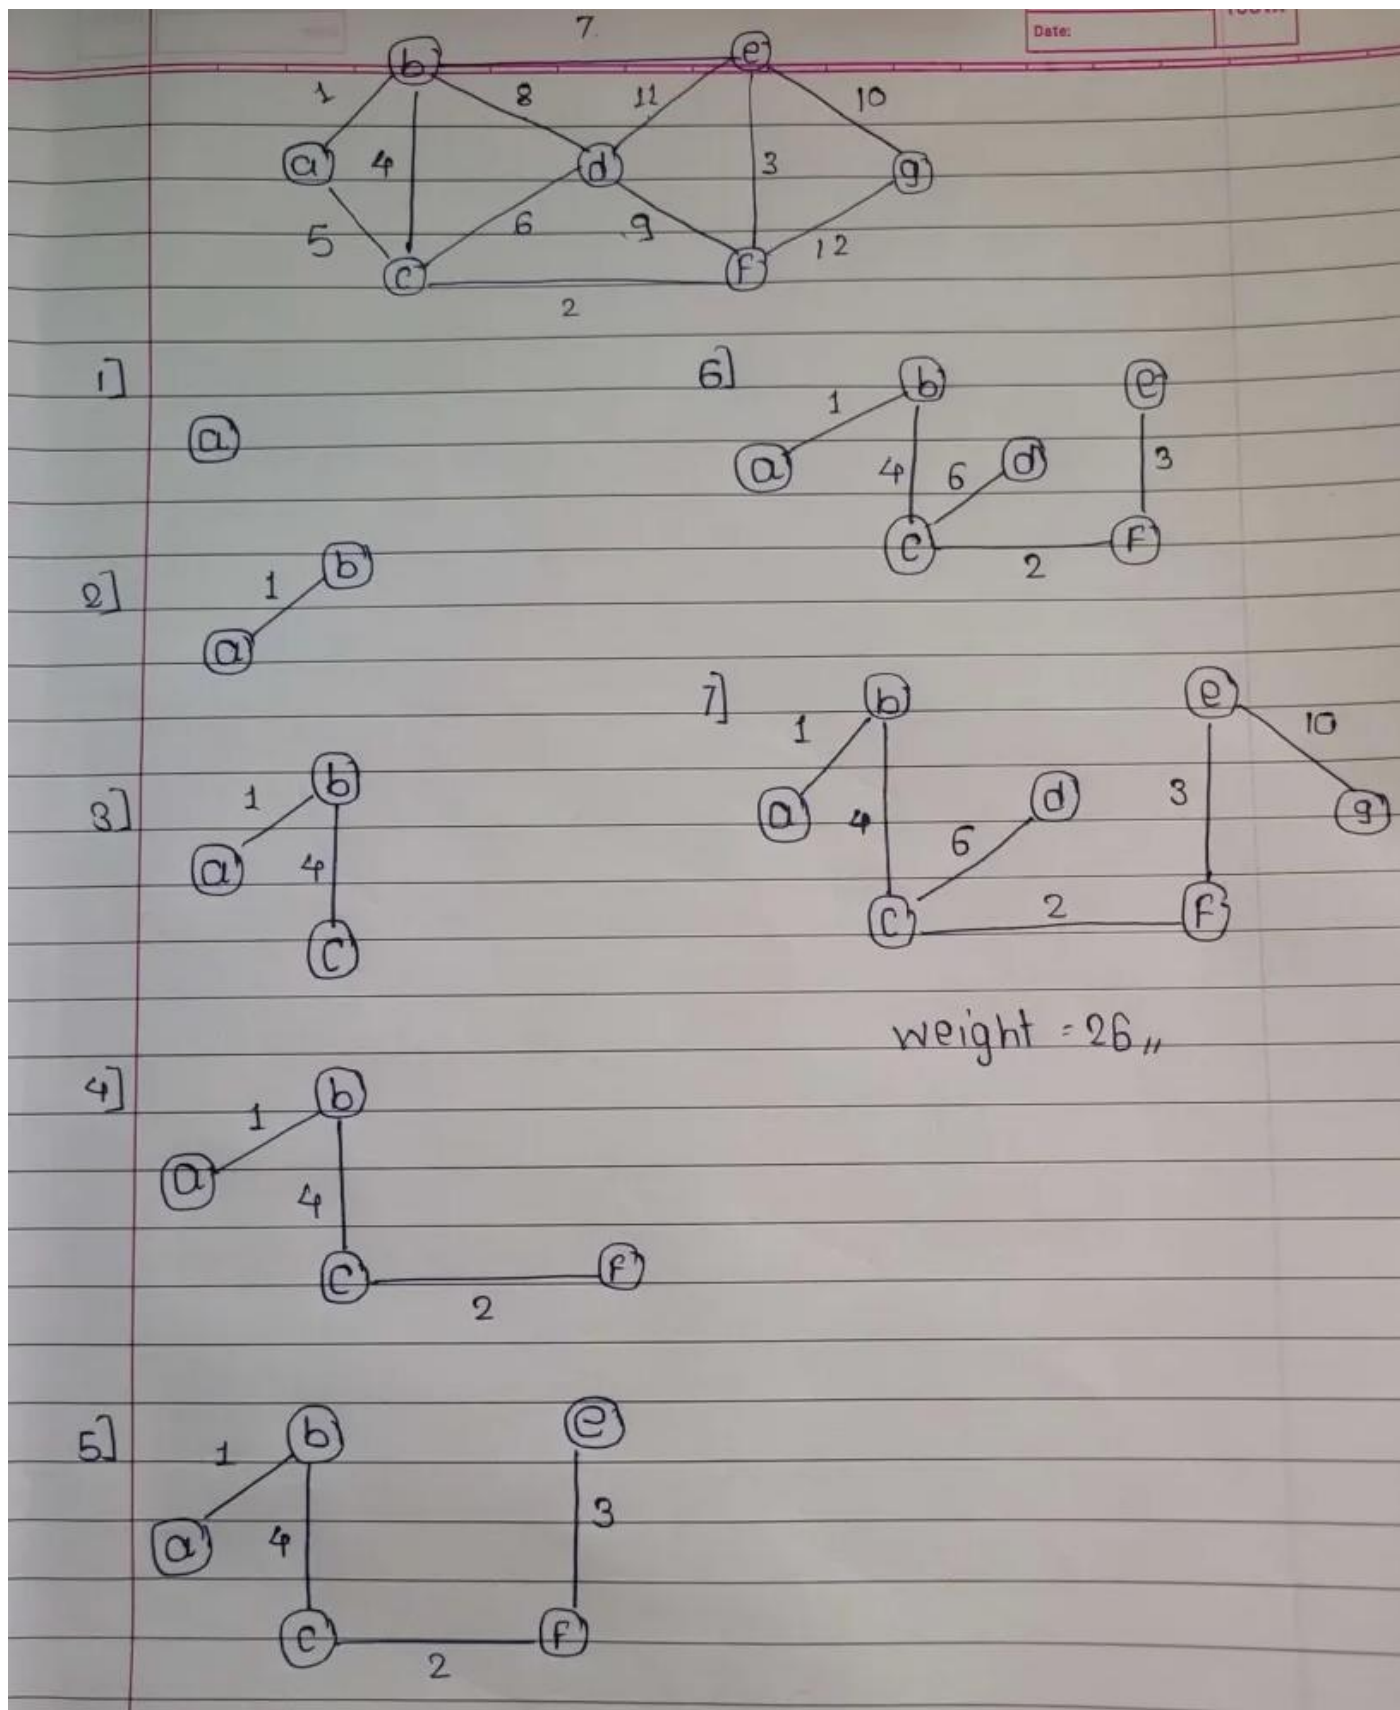 7.
Date:
b e
1 8 11 10
a 4 d 3 g
5 6 9 12
c f
2
1]
a
2]
1 b
a
3]
1 b
a 4
c
4]
1 b
a
4
c f
2
5]
1 b e
a 4 3
c f
2
6]
b e
1
a 4 6 d 3
c f
2
7]
b e
1 10
a 4 d 3 g
6
c 2 f
weight = 26 ,,